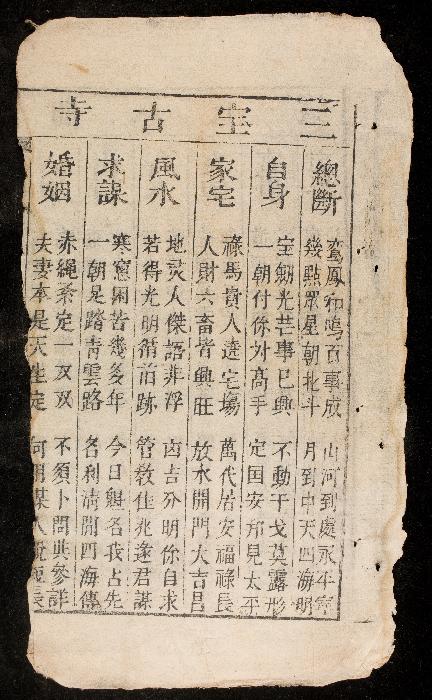 三宝古寺
總斷
鸾鳳和鳴百事成 山河到處永平寧
幾點眾星朝北斗 月到中天四海明
自身
宝劍光芒事已興 不動干戈莫露形
一朝付你对高手 定国安邦見太平
家宅
祿馬貴人遶宅場 萬代居安福祿長
人財六畜皆興旺 放水開門大吉昌
風水
地灵人傑語非浮 凶吉分明你自求
若得光明循旧跡 管教佳兆遂君謀
求謀
寒窓困苦幾多年 今日魁名我占先
一朝足踏青雲路 名利清閒四海傳
婚姻
赤繩系定一双双 不須卜問與參詳
夫妻本是天生定 何用媒人說短長